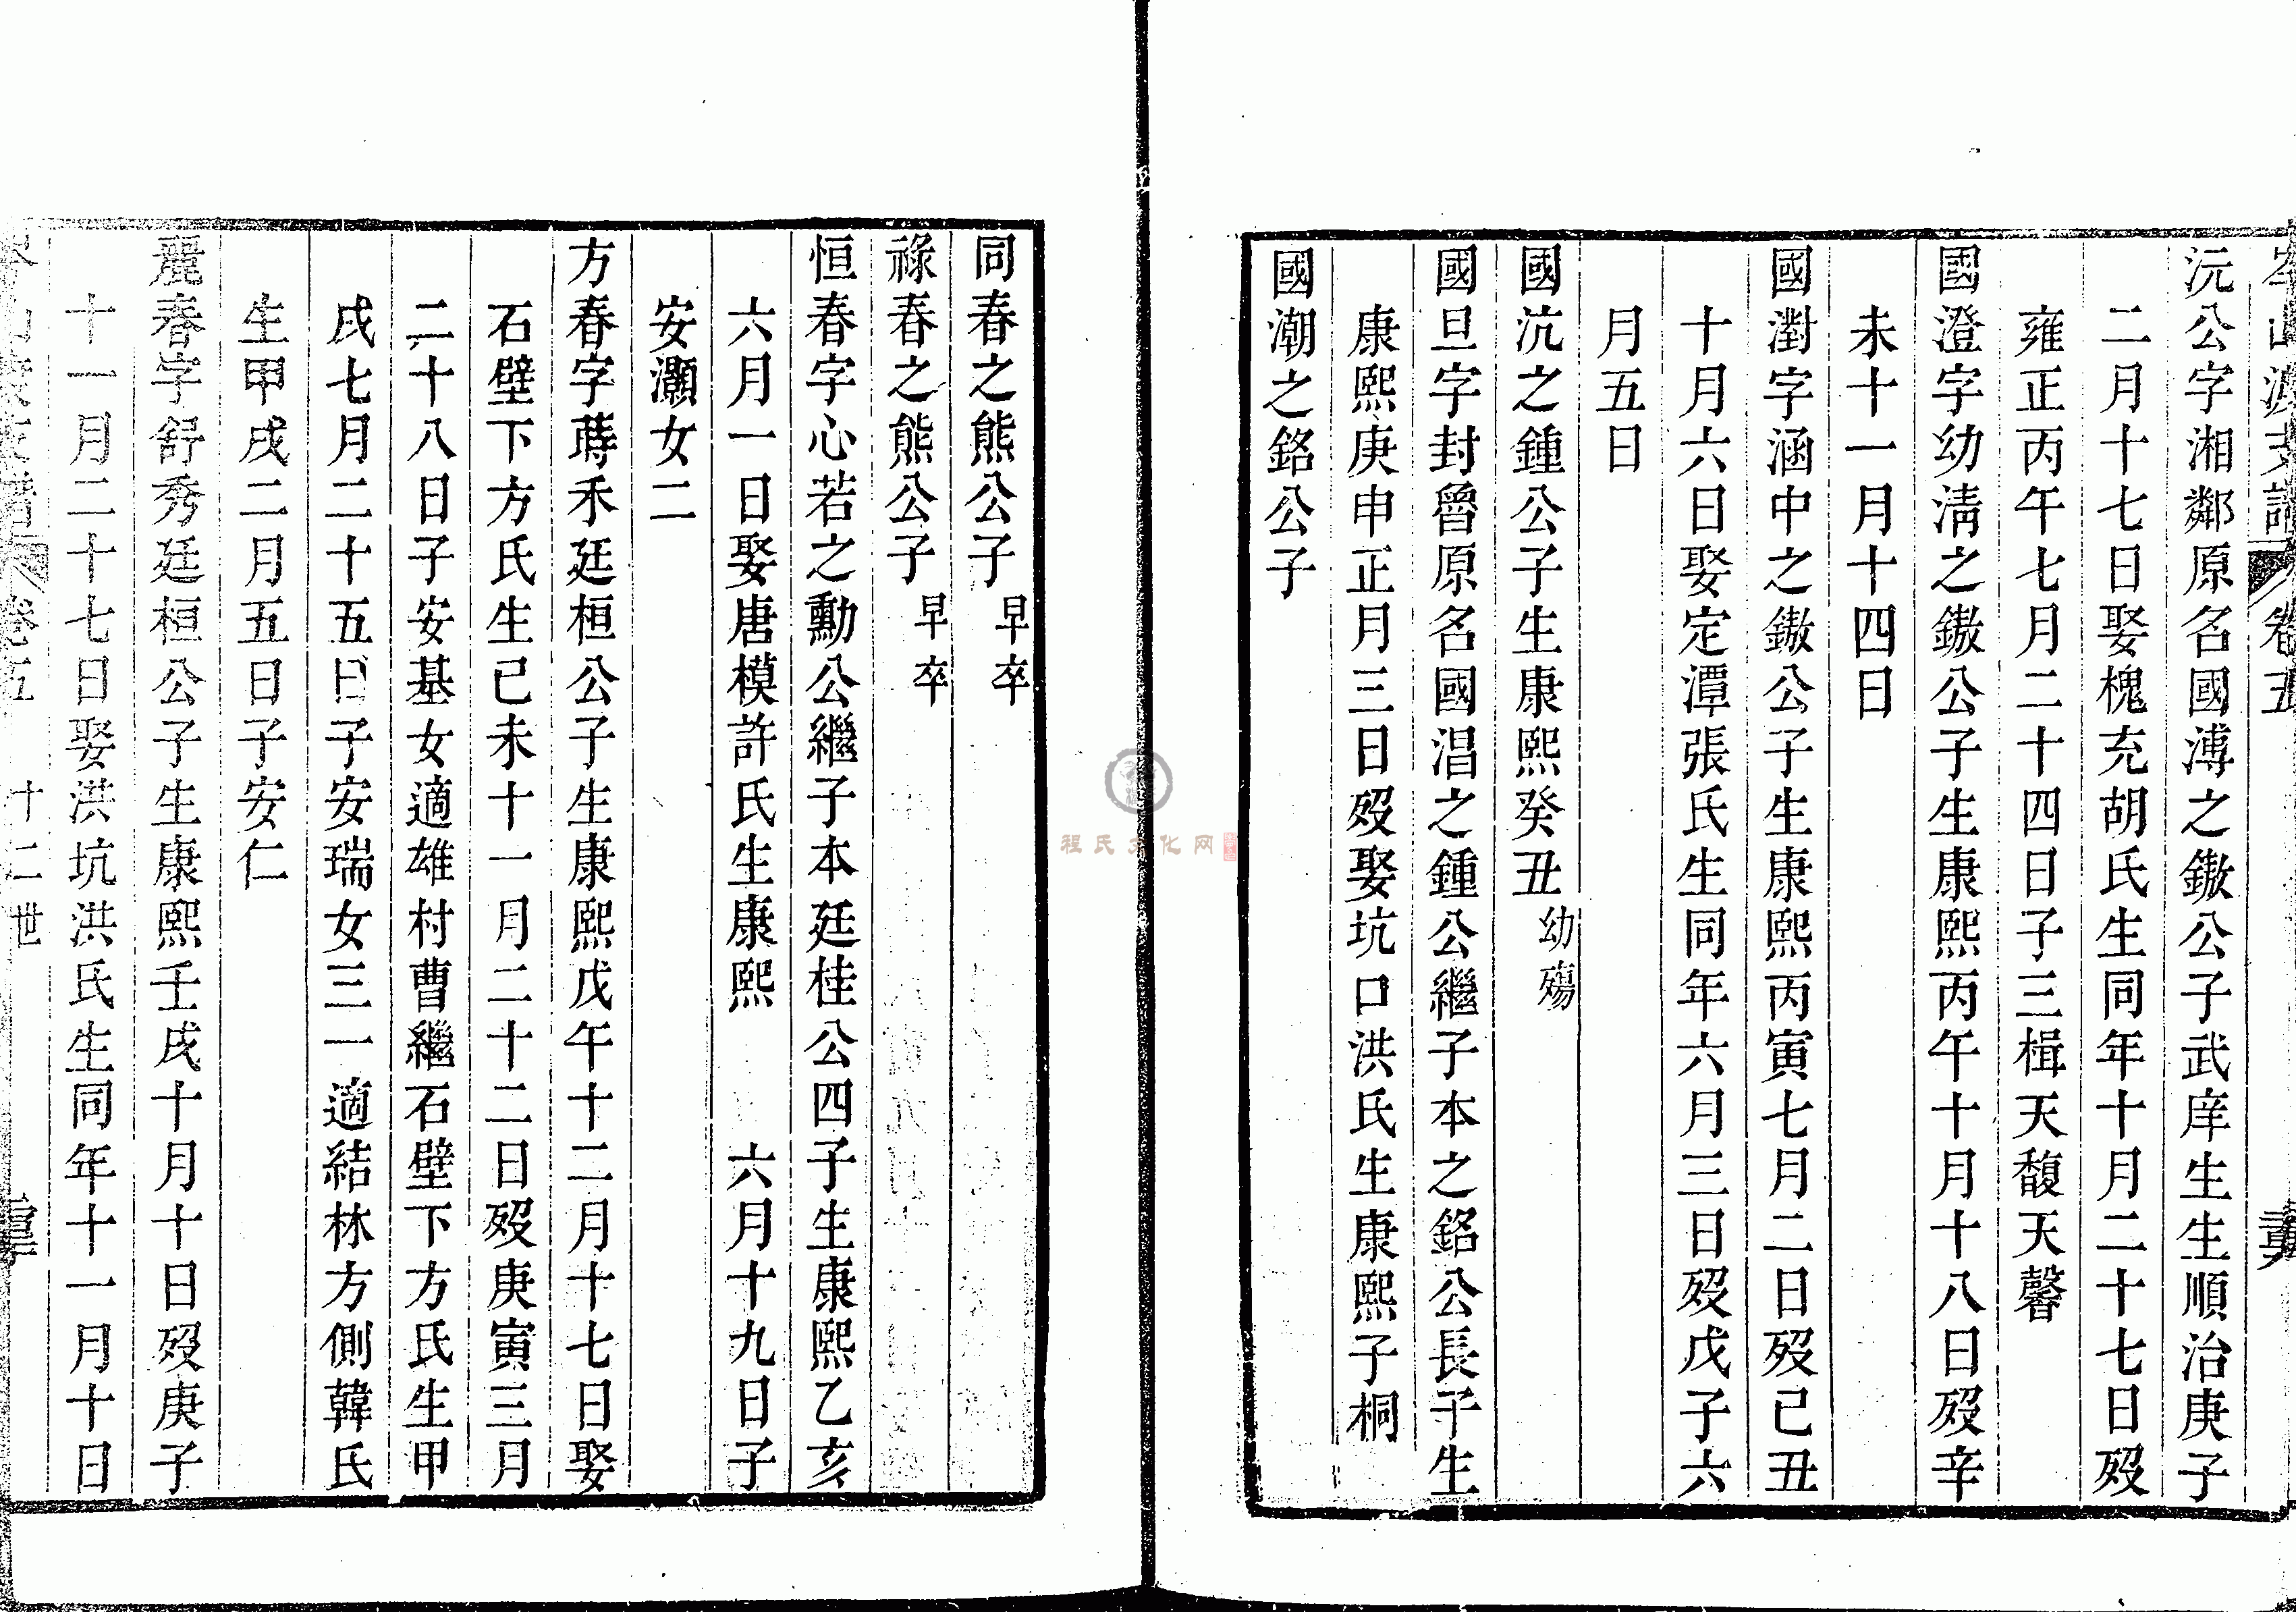 卷五
沅公字湘鄰原名國溥之鏾公子武庠生生順治庚子
二月十七日娶槐充胡氏生同年十月二十七日歿
雍正丙午七月二十四日子三楫天馥天馨
國澄字幼淸之鏾公子生康熙丙午十月十八日歿辛
未十一月十四日
國澍字涵中之鏾公子生康熙丙寅七月二日歿己丑
十月六日娶定潭張氏生同年六月三日歿戊子六
月五日
國沆之鍾公子生康熙癸丑幼殤
國旦字封魯原名國淐之鍾公繼子本之銘公長子生
康熙庚申正月三日歿娶坑口洪氏生康熙子桐
國潮之銘公子
同春之熊公子早卒
祿春之熊公子早卒
恒春字心若之勳公繼子本廷桂公四子生康熙乙亥
六月一日娶唐模許氏生康熙 六月十九日子
安灝女二
方春字蒔禾廷桓公子生康熙戊午十二月十七日娶
石壁下方氏生己未十一月二十二日歿庚寅三月
二十八日子安基女適雄村曹繼石壁下方氏生甲
戌七月二十五日子安瑞女三一適結林方側韓氏
生甲戌二月五日子安仁
麗春字舒秀廷桓公子生康熙壬戌十月十日歿庚子
十一月二十七日娶洪坑洪氏生同年十一月十日
卷五 十二世
程氏文化网